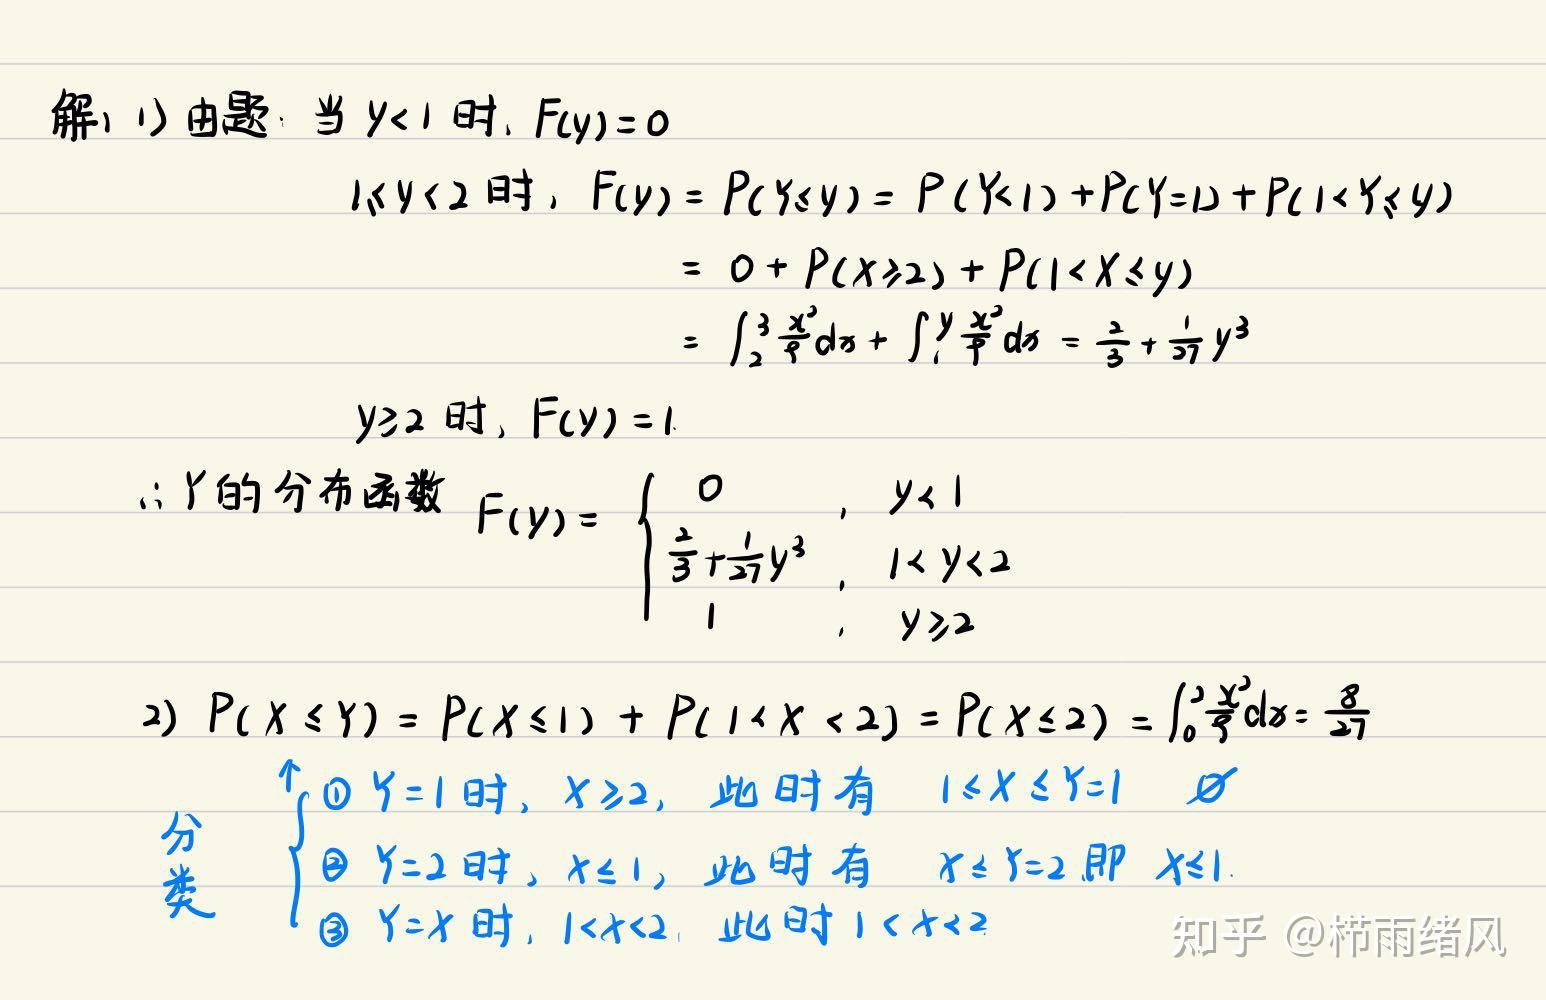 解：1) 由题：当 y<1 时，F(y)=0
1≤y<2 时，F(y) = P(Y≤y) = P(Y<1)+P(Y=1)+P(1<Y≤y)
= 0 + P(X≥2) + P(1<X≤y)
= ∫₂³ x²/9 dx + ∫₁^y x²/9 dx = 2/3 + 1/27 y³
y≥2 时，F(y)=1.
∴ Y的分布函数 F(y) = { 0 , y<1
2/3 + 1/27 y³ , 1<y<2
1 , y≥2
2) P(X≤Y) = P(X≤1) + P(1<X<2) = P(X≤2) = ∫₀² x²/9 dx = 8/27
↑
分类 { ① Y=1 时，X≥2，此时有 1≤X≤Y=1 ∅
② Y=2 时，X≤1，此时有 X≤Y=2 即 X≤1.
③ Y=X 时，1<X<2，此时 1<X<2
知乎 @栉雨绪风